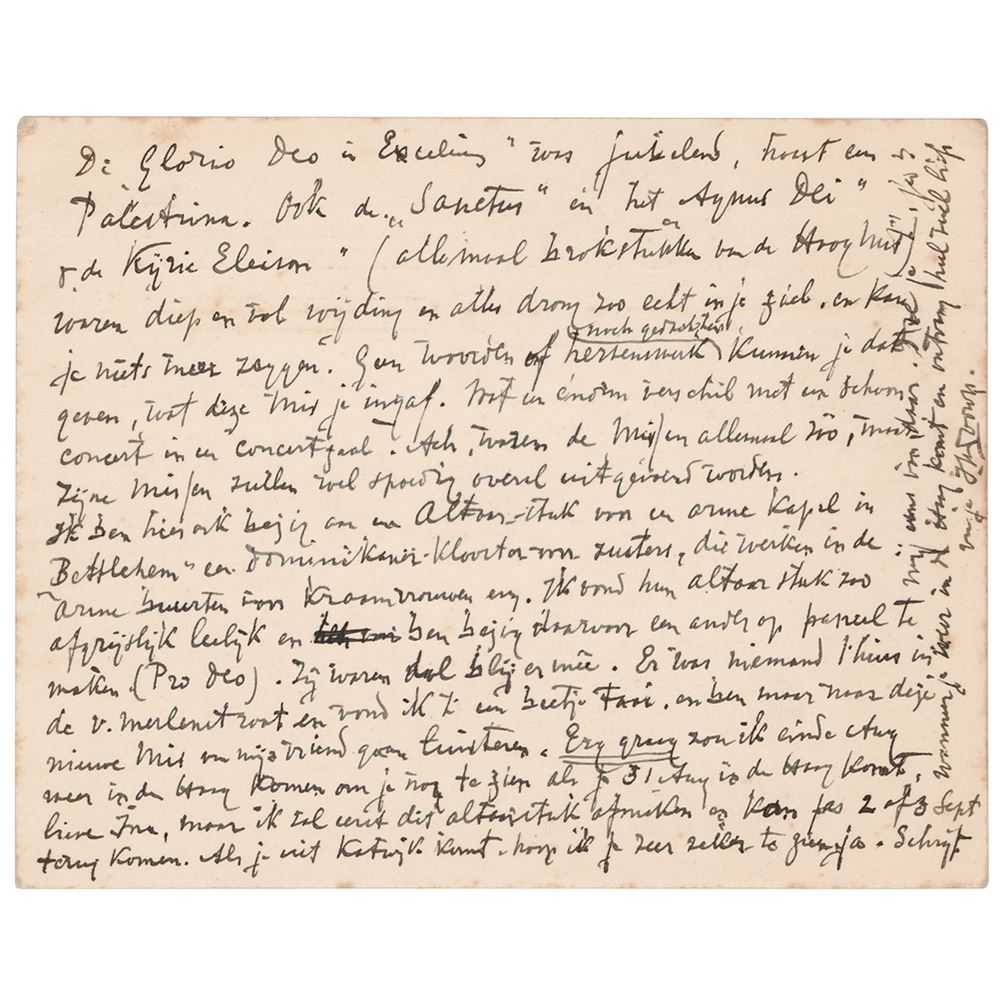 De Gloria Deo in Excelsius" was jubelend, haast een
Palestrina. Ook de "Sanctus" en het Agnus Dei"
& de Kÿrie Eleison" (allemaal brokstukken van de Hoog Mis)
waren diep en vol wijding en alles drong zoo echt in je ziel. en kan
noch gedachten
je niets meer zeggen. Geen woorden of hersenswerk kunnen je dat
geven, wat deze Mis je ingaf. Wat een énorm verschil met een schoon
concert in een concertzaal. Ach, waren de Missen allemaal zóó, maar
zijne Missen zullen wel spoedig overal uitgevoerd worden.
Ik ben hier ook bezig aan een Altaar-stuk voor een arme Kapel in
Bethlehem" een Dominikaner-Klooster voor zusters, die werken in de
arme buurten voor Kraamvrouwen enz. Ik vond hun altaarstuk zoo
afgrijslijk leelijk en ben bezig daarvoor een ander op paneel te
maken. (Pro Deo). Zij waren dol blij ermee. Er was niemand thuis in
de v. Merlenstraat en vond ik 't een beetje taai. en ben maar naar deze
nieuwe Mis van mijn vriend gaan luisteren. Erg graag zou ik einde Aug
weer in den Haag komen om je nog te zien als je 31 Aug in de Haag komt,
lieve Ina, maar ik zal eerst dit altaarstuk afmaken en kan pas 2 of 3 Sept
terug komen. Als je uit Katwijk komt. hoop ik je zeer zeker te zien ja. Schrijf
mij eens van daar.
wanneer je weer in den Haag komt en ontvang heel veel liefs
van je